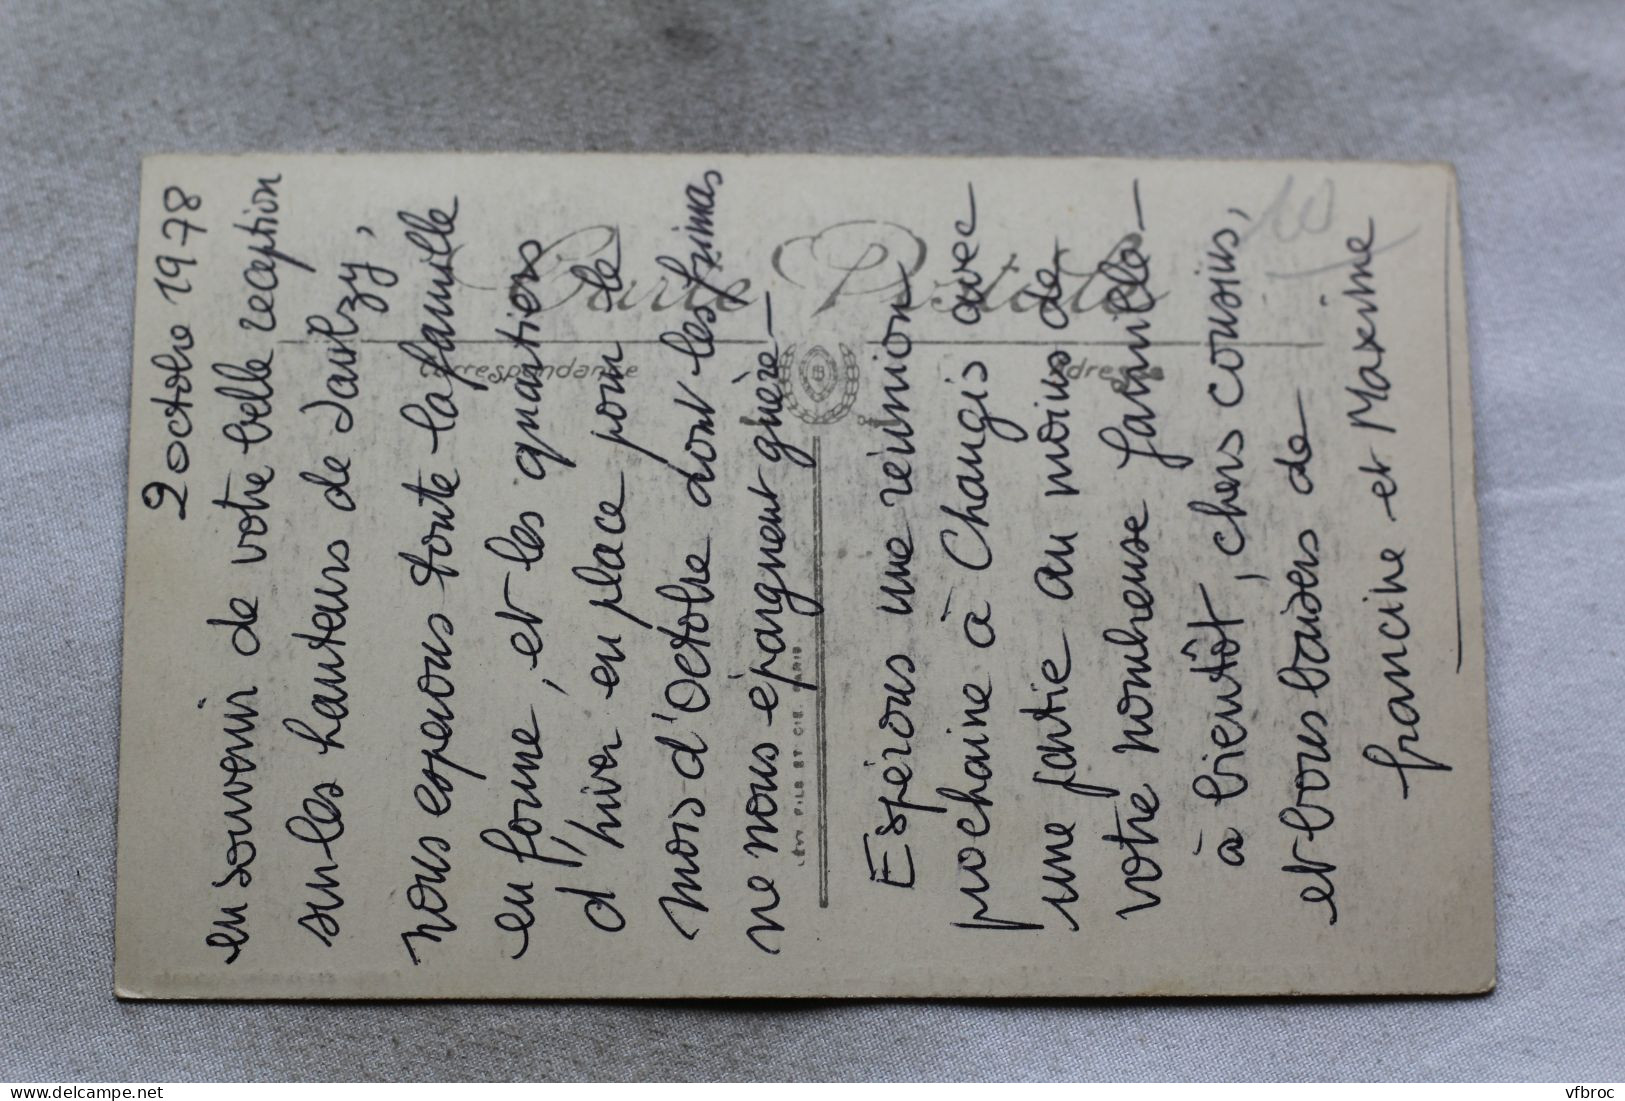 2 octobre 1978
en souvenir de votre belle reception
sur les hauteurs de Jaulzy,
nous esperons toute la famille
en forme, et les quartiers
d'hiver en place pour le
mois d'Octobre dont les frimas
ne nous épargnent guère -
Espérons une réunion
prochaine à Changis avec
une partie au moins de
votre nombreuse famille -
à bientôt, chers cousins,
et bons baisers de
francine et Maxime
10
Carte Postale
Correspondance
Adresse
LÉVY FILS ET CIE. PARIS
vfbroc